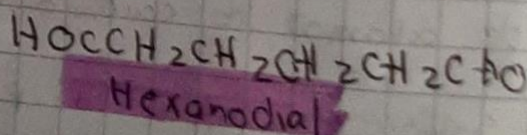 HOCCH2CH2CH2CH2CHO
Hexanodial